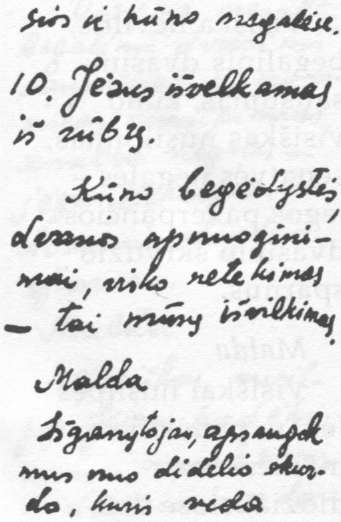 sios ir kūno negalėse.
10. Jėzus išvelkamas
iš rūbų.
Kūno begėdystės,
dvasios apnuogini-
mai, visko netekimas
– tai mūsų išvilkimas.
Malda
Išganytojau, apsaugok
mus nuo didelio skur-
do, kuris veda